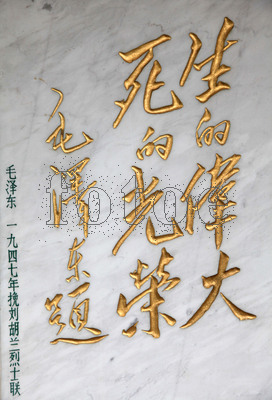 生的偉大
死的光榮
毛澤东題
毛泽东 一九四七年挽刘胡兰烈士联
fotoe